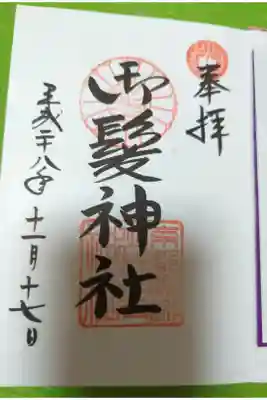 奉拝
御髪神社
平成二十八年十一月十七日